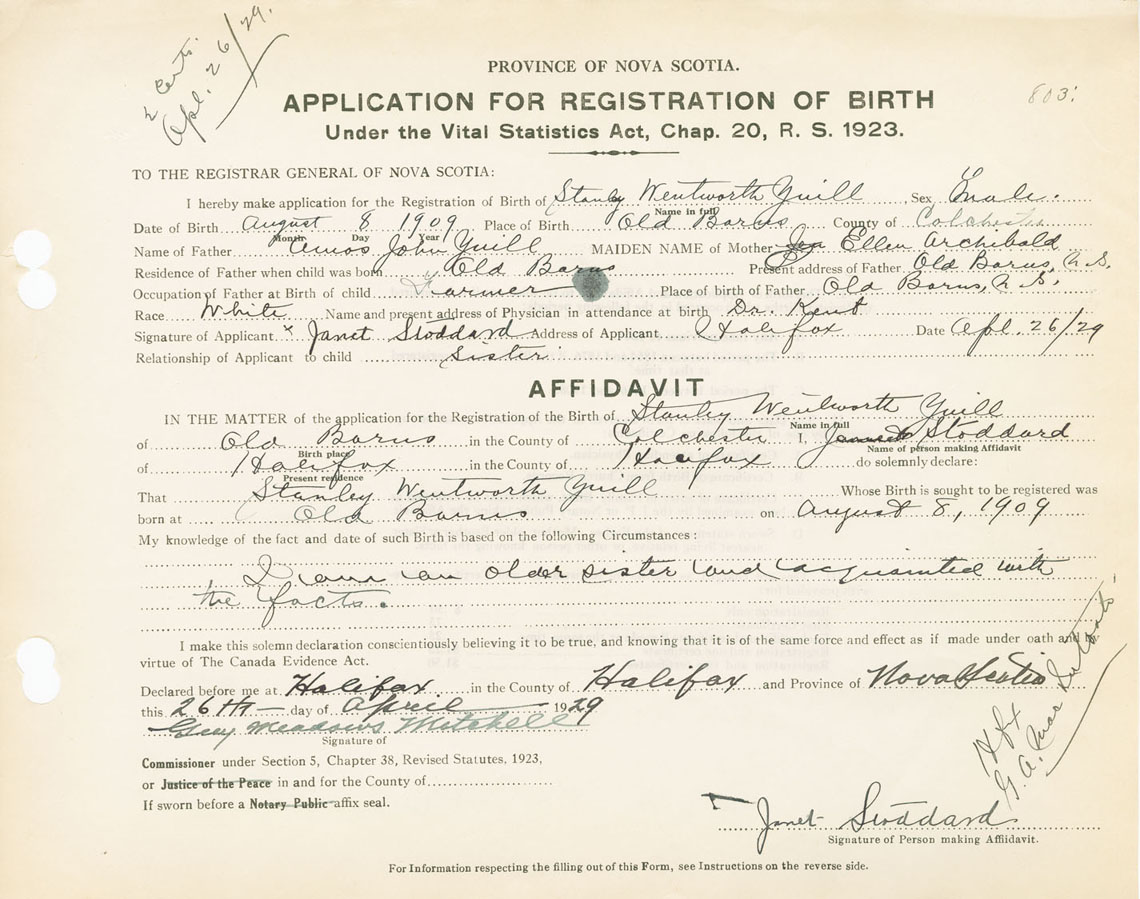 2 Certs.
Apl. 26/29.
803.
PROVINCE OF NOVA SCOTIA.
APPLICATION FOR REGISTRATION OF BIRTH
Under the Vital Statistics Act, Chap. 20, R. S. 1923.
TO THE REGISTRAR GENERAL OF NOVA SCOTIA:
I hereby make application for the Registration of Birth of Stanley Wentworth Yuill, Sex Male.
Name in full
Date of Birth August 8 1909 Place of Birth Old Barns County of Colchester
Month Day Year
Name of Father Amos John Yuill MAIDEN NAME of Mother Ellen Archibald
Residence of Father when child was born Old Barns Present address of Father Old Barns, N.S.
Occupation of Father at Birth of child Farmer Place of birth of Father Old Barns, N.S.
Race White Name and present address of Physician in attendance at birth Dr. Kent
Signature of Applicant x Janet Stoddard Address of Applicant Halifax Date Apl. 26/29
Relationship of Applicant to child sister
AFFIDAVIT
IN THE MATTER of the application for the Registration of the Birth of Stanley Wentworth Yuill
Name in full
of Old Barns in the County of Colchester I, Stoddard
Birth place Name of person making Affidavit
of Halifax in the County of Halifax do solemnly declare:
Present residence
That Stanley Wentworth Yuill Whose Birth is sought to be registered was
born at Old Barns on August 8, 1909
My knowledge of the fact and date of such Birth is based on the following Circumstances:
I am an older sister and acquainted with
the facts.
I make this solemn declaration conscientiously believing it to be true, and knowing that it is of the same force and effect as if made under oath and by
virtue of The Canada Evidence Act.
Declared before me at Halifax in the County of Halifax and Province of Nova Scotia
this 26th day of April 1929
Guy Meadows Mitchell
Signature of
Commissioner under Section 5, Chapter 38, Revised Statutes, 1923,
or Justice of the Peace in and for the County of
If sworn before a Notary Public affix seal.
Hfx
Janet Stoddard
Signature of Person making Affiidavit.
For Information respecting the filling out of this Form, see Instructions on the reverse side.